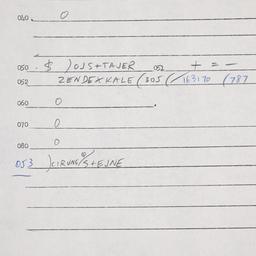 040. 0
050 . $ )OJS+TAJER 052 + = -
052 ZENDEXKALE (305 (/163170 (787
060 0
070 0
080 0
053 )CIRUNG/S+EJNE